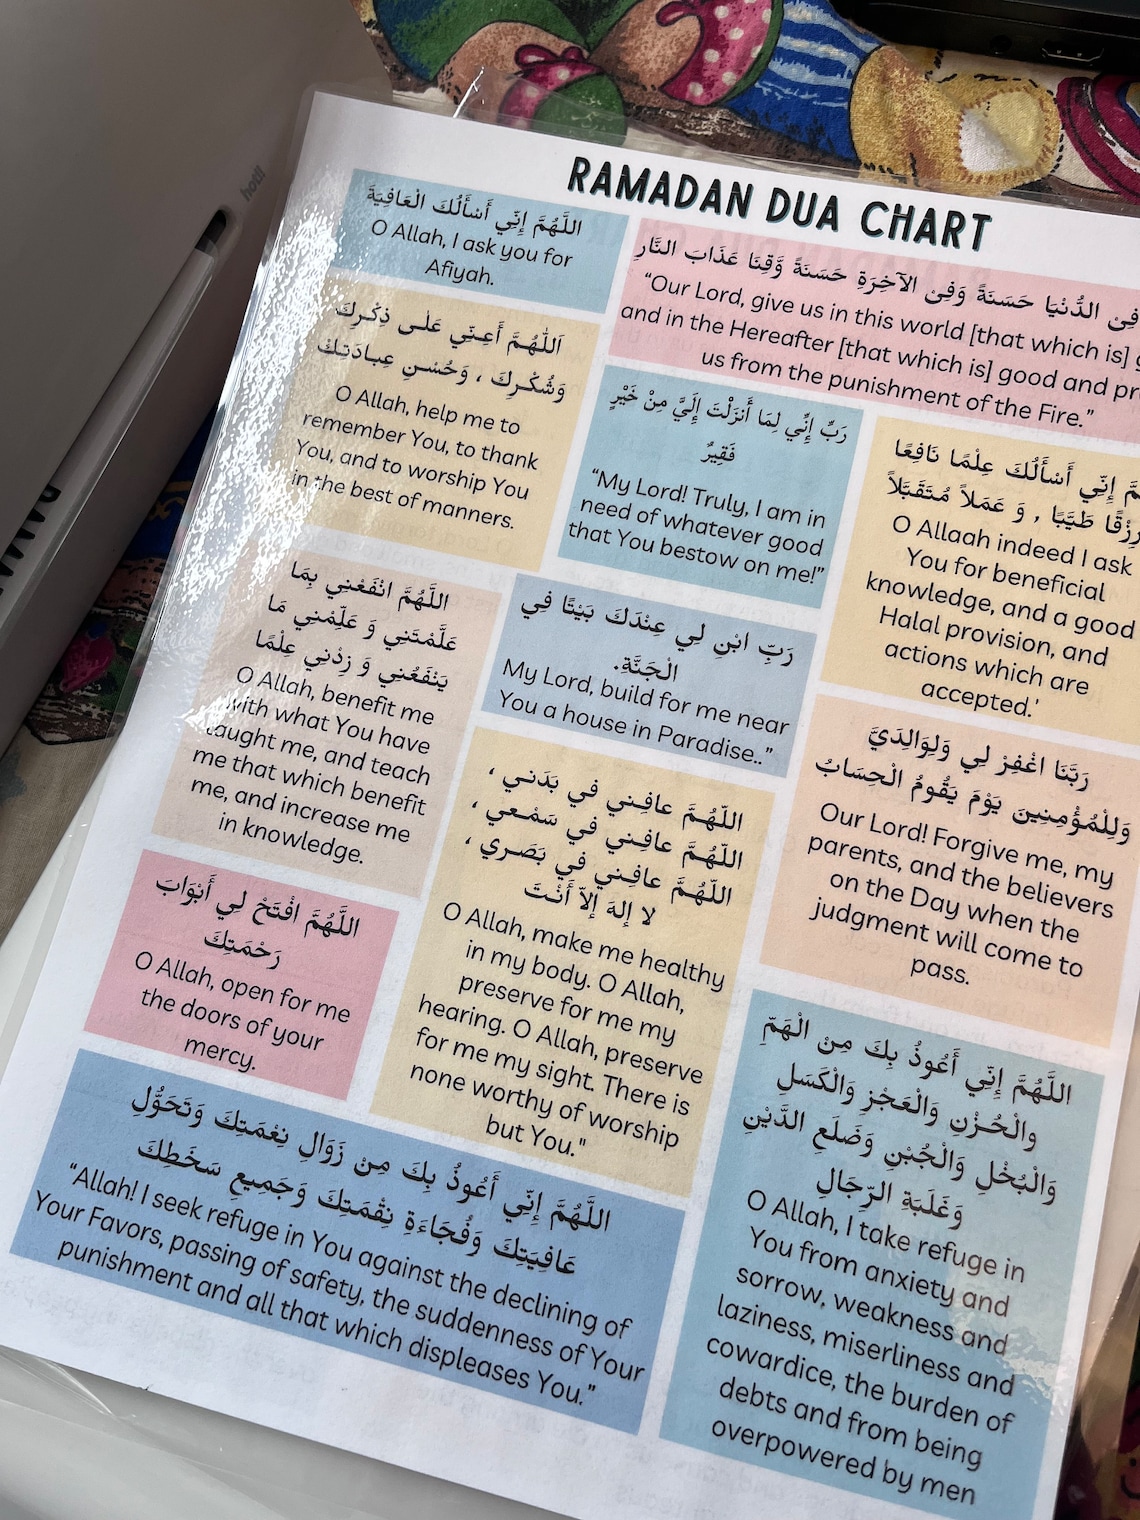 RAMADAN DUA CHART
اللَّهُمَّ إِنِّي أَسْأَلُكَ الْعَافِيَةَ
O Allah, I ask you for
Afiyah.
فِيْ الدُّنْيَا حَسَنَةً وَفِيْ الآخِرَةِ حَسَنَةً وَّقِنَا عَذَابَ النَّارِ
“Our Lord, give us in this world [that which is]
and in the Hereafter [that which is] good and
us from the punishment of the Fire.”
اَللّٰهُمَّ أَعِنِّي عَلَى ذِكْرِكَ
وَشُكْرِكَ ، وَحُسْنِ عِبَادَتِكَ
O Allah, help me to
remember You, to thank
You, and to worship You
in the best of manners.
رَبِّ إِنِّي لِمَا أَنزَلْتَ إِلَيَّ مِنْ خَيْرٍ
فَقِيرٌ
“My Lord! Truly, I am in
need of whatever good
that You bestow on me!”
إِنِّي أَسْأَلُكَ عِلْمًا نَافِعًا
رِزْقًا طَيِّبًا , وَ عَمَلاً مُتَقَبَّلاً
O Allaah indeed I ask
You for beneficial
knowledge, and a good
Halal provision, and
actions which are
accepted.'
اللَّهُمَّ انْفَعْنِي بِمَا
عَلَّمْتَنِي وَ عَلِّمْنِي مَا
يَنْفَعُنِي وَ زِدْنِي عِلْمًا
O Allah, benefit me
with what You have
taught me, and teach
me that which benefit
me, and increase me
in knowledge.
رَبِّ ابْنِ لِي عِنْدَكَ بَيْتًا فِي
الْجَنَّةِ.
My Lord, build for me near
You a house in Paradise..”
رَبَّنَا اغْفِرْ لِي وَلِوَالِدَيَّ
وَلِلْمُؤْمِنِينَ يَوْمَ يَقُومُ الْحِسَابُ
Our Lord! Forgive me, my
parents, and the believers
on the Day when the
judgment will come to
pass.
اللَّهُمَّ افْتَحْ لِي أَبْوَابَ
رَحْمَتِكَ
O Allah, open for me
the doors of your
mercy.
اللّهُمَّ عافِـني في بَدَنـي ،
اللّهُمَّ عافِـني في سَمْـعي ،
اللّهُمَّ عافِـني في بَصَـري ،
لا إلهَ إلاّ أَنْـتَ
O Allah, make me healthy
in my body. O Allah,
preserve for me my
hearing. O Allah, preserve
for me my sight. There is
none worthy of worship
but You."
اللَّهُمَّ إِنِّي أَعُوذُ بِكَ مِنَ الْهَمِّ
والْحُـزْنِ وَالْعَجْزِ وَالْكَسَلِ
وَالْبُخْلِ وَالْجُبْنِ وَضَلَعِ الدَّيْنِ
وَغَلَبَةِ الرِّجَالِ
O Allah, I take refuge in
You from anxiety and
sorrow, weakness and
laziness, miserliness and
cowardice, the burden of
debts and from being
overpowered by men
اللَّهُمَّ إِنِّي أَعُوذُ بِكَ مِنْ زَوَالِ نِعْمَتِكَ وَتَحَوُّلِ
عَافِيَتِكَ وَفُجَاءَةِ نِقْمَتِكَ وَجَمِيعِ سَخَطِكَ
“Allah! I seek refuge in You against the declining of
Your Favors, passing of safety, the suddenness of Your
punishment and all that which displeases You.”